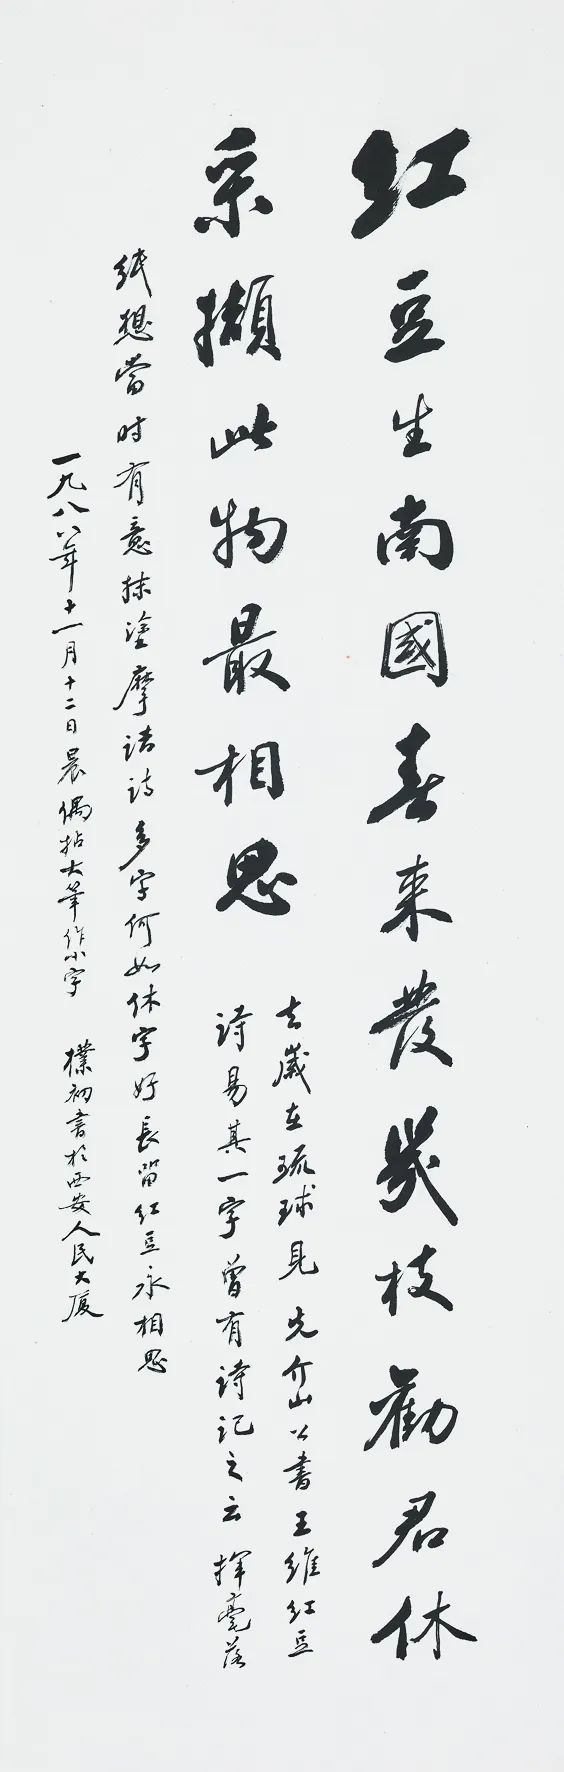 紅豆生南國春來發幾枝勸君休
采擷此物最相思
去歲在琉球見 先介山公書王維紅豆
詩易其一字曾有詩記之云 揮毫落
紙想當時有意抹塗摩詰詩多字何如休字好長留紅豆永相思
一九八八年十一月十二日晨偶拈大筆作小字 樸初書於西安人民大廈